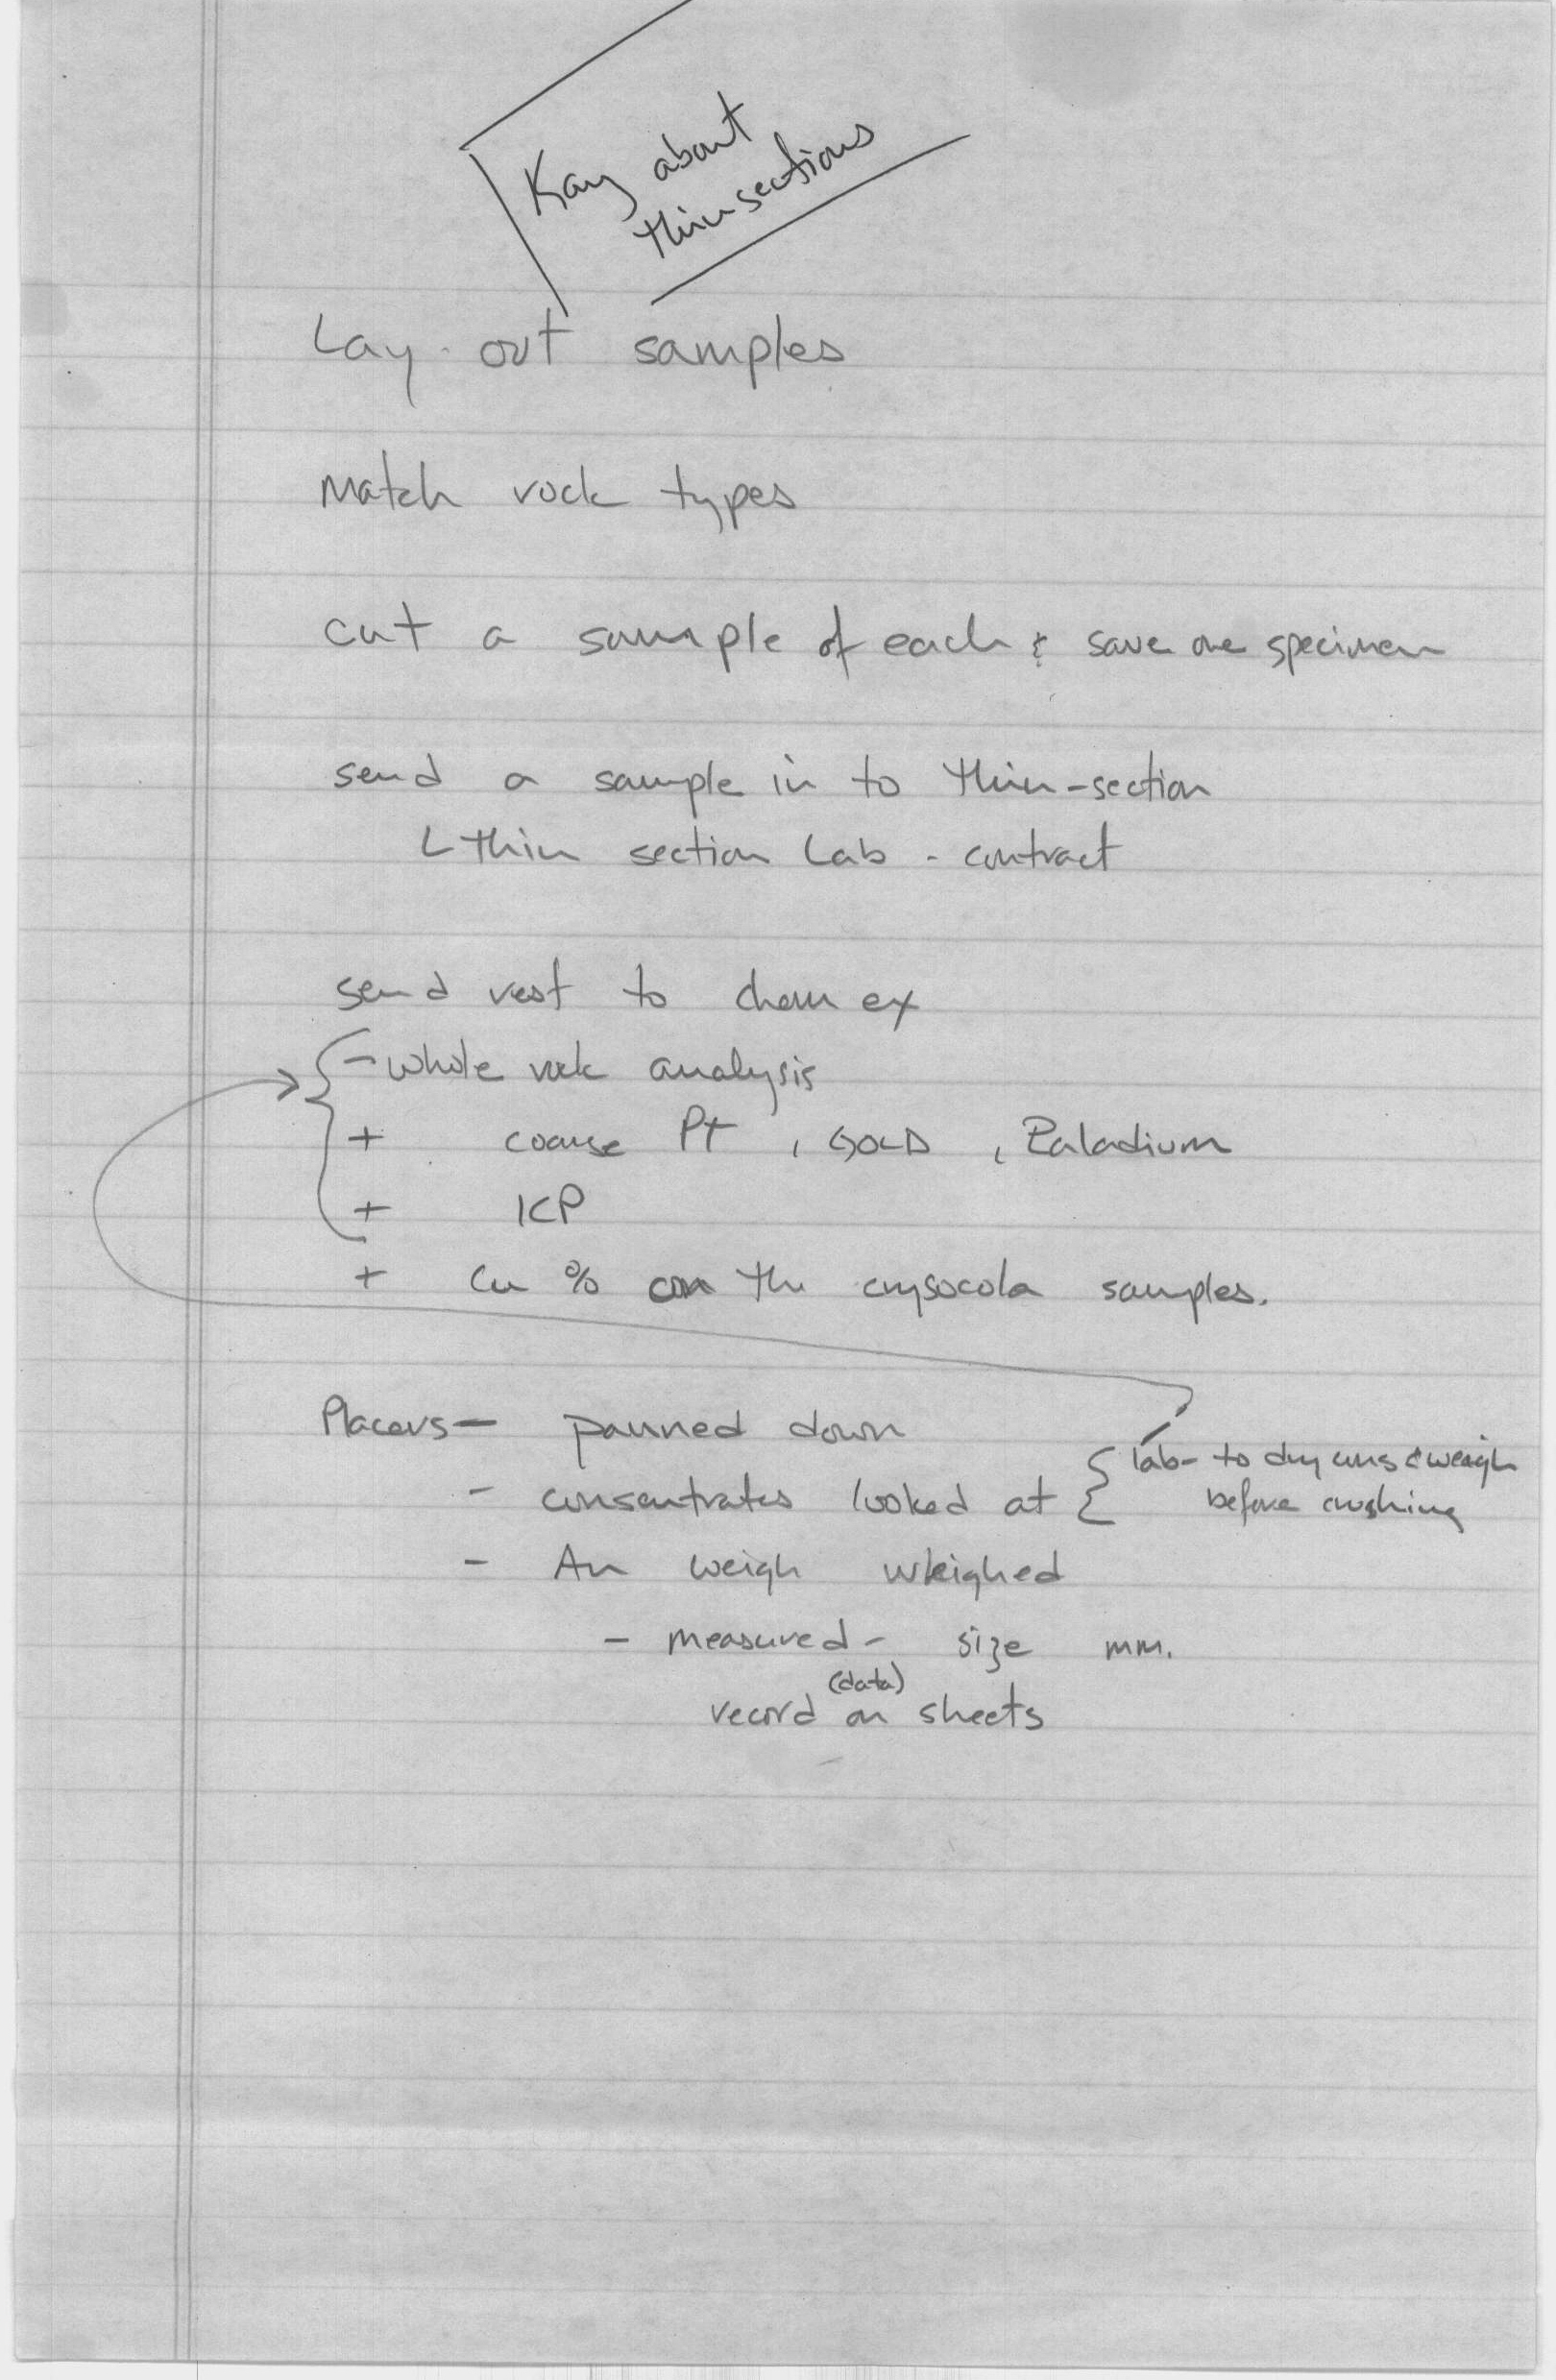 Kay about
thin sections
Lay out samples
Match rock types
cut a sample of each & save one specimen
send a sample in to thin-section
L thin section Lab - contract
send rest to chem ex
- whole rock analysis
+ coarse Pt , GOLD , Paladium
+ ICP
+ Cu % on the crysocola samples.
Placers - panned down
- consentrates looked at { lab- to dry cons & weigh
before crushing
- Au weigh wheighed
- measured - size mm.
(data)
record on sheets